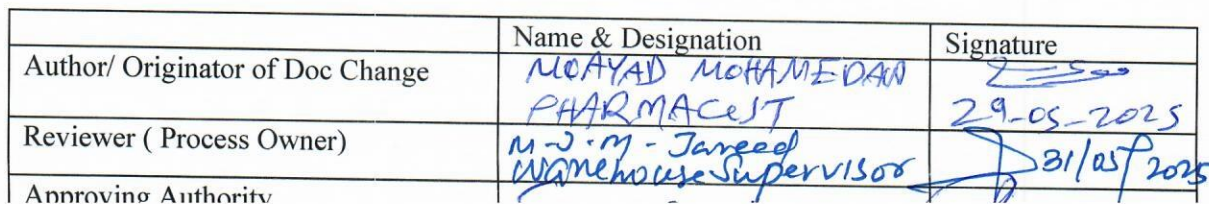 Name & Designation Signature
Author/ Originator of Doc Change MOAYAD MOHAMEDAN
PHARMACIST 29-05-2025
Reviewer ( Process Owner) M-J.M - Jareed 31/05/2025
Warehouse Supervisor
Approving Authority